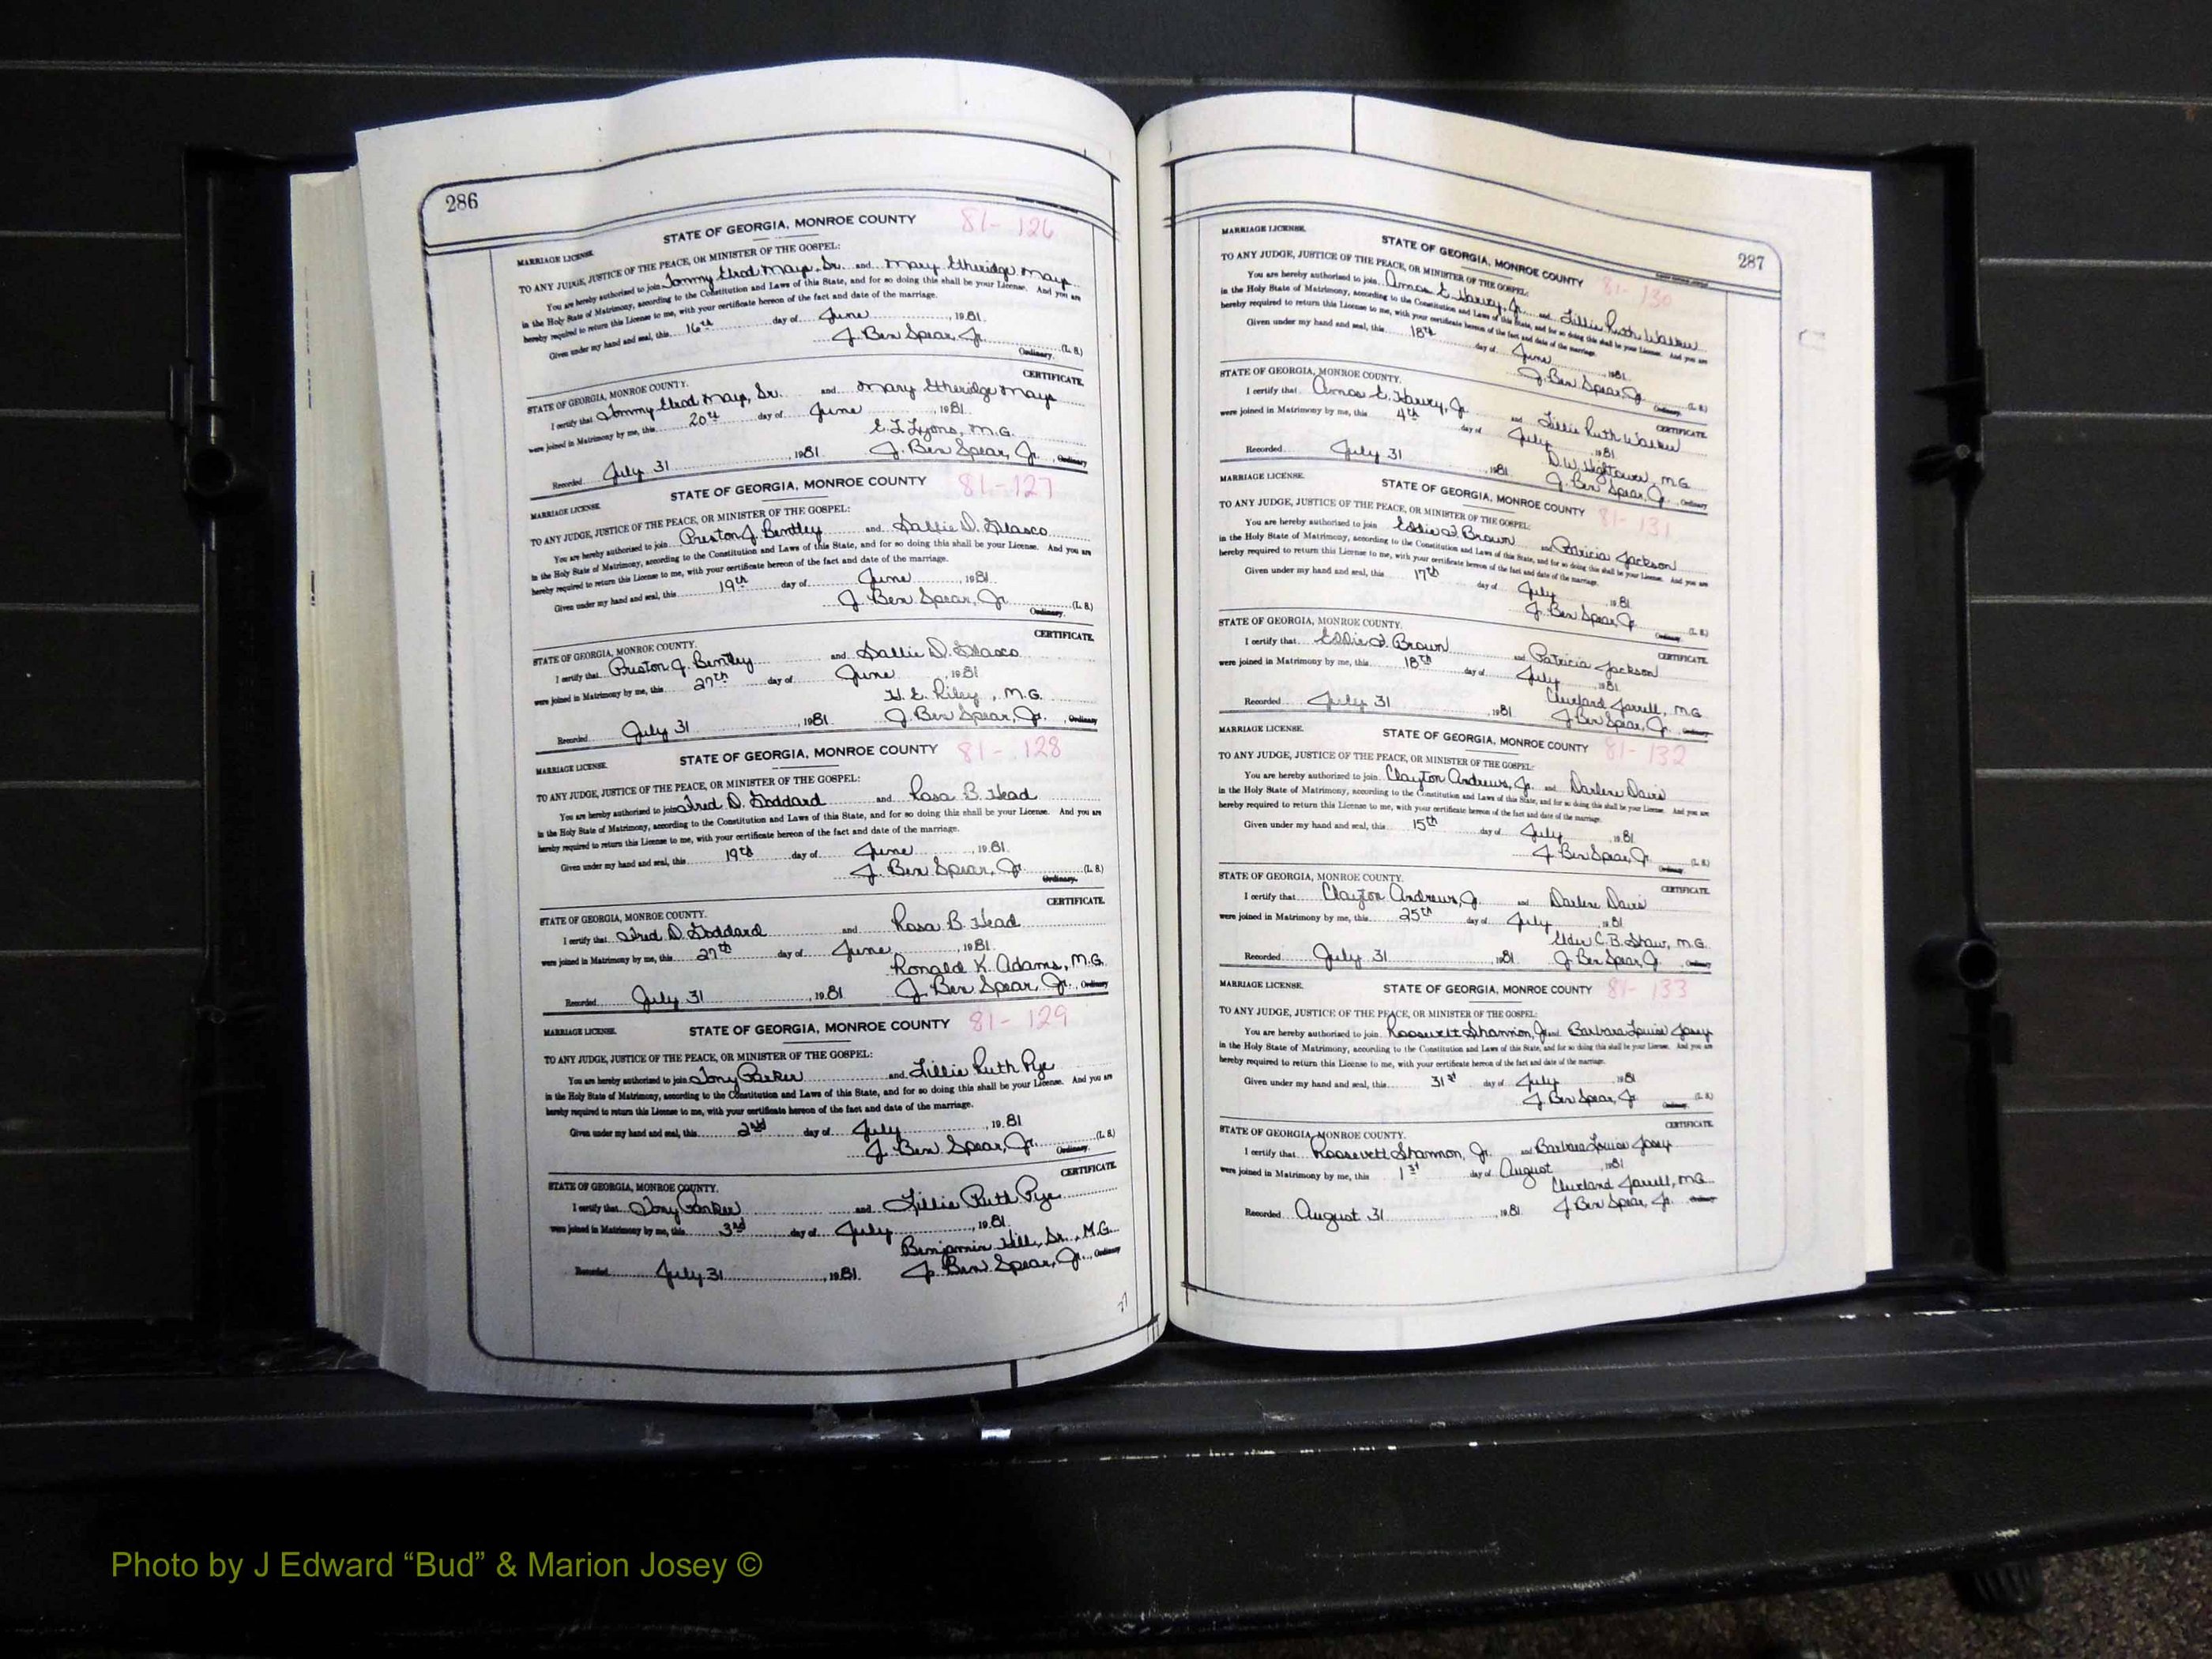 286
STATE OF GEORGIA, MONROE COUNTY 81-126
MARRIAGE LICENSE.
TO ANY JUDGE, JUSTICE OF THE PEACE, OR MINISTER OF THE GOSPEL:
You are hereby authorized to join Tommy Elrod Mays, Sr. and Mary Etheridge Mays
in the Holy State of Matrimony, according to the Constitution and Laws of this State, and for so doing this shall be your License. And you are
hereby required to return this License to me, with your certificate hereon of the fact and date of the marriage.
Given under my hand and seal, this 16th day of June, 1981.
J. Ben Spear, Jr. (L. S.)
Ordinary.
CERTIFICATE.
STATE OF GEORGIA, MONROE COUNTY.
I certify that Tommy Elrod Mays, Sr. and Mary Etheridge Mays
were joined in Matrimony by me, this 20th day of June, 1981.
E. L. Lyons, M.G.
Recorded July 31, 1981. J. Ben Spear, Jr., Ordinary
STATE OF GEORGIA, MONROE COUNTY 81-127
MARRIAGE LICENSE.
TO ANY JUDGE, JUSTICE OF THE PEACE, OR MINISTER OF THE GOSPEL:
You are hereby authorized to join Preston J. Bentley and Sallie D.
in the Holy State of Matrimony, according to the Constitution and Laws of this State, and for so doing this shall be your License. And you are
hereby required to return this License to me, with your certificate hereon of the fact and date of the marriage.
Given under my hand and seal, this 19th day of June, 1981.
J. Ben Spear, Jr. (L. S.)
Ordinary.
CERTIFICATE.
STATE OF GEORGIA, MONROE COUNTY.
I certify that Preston J. Bentley and Sallie D.
were joined in Matrimony by me, this 27th day of June, 1981
H. E. Riley, M.G.
Recorded July 31, 1981. J. Ben Spear, Jr., Ordinary
STATE OF GEORGIA, MONROE COUNTY 81-128
MARRIAGE LICENSE.
TO ANY JUDGE, JUSTICE OF THE PEACE, OR MINISTER OF THE GOSPEL:
You are hereby authorized to join Fred D. Goddard and Rosa B. Head
in the Holy State of Matrimony, according to the Constitution and Laws of this State, and for so doing this shall be your License. And you are
hereby required to return this License to me, with your certificate hereon of the fact and date of the marriage.
Given under my hand and seal, this 19th day of June, 1981.
J. Ben Spear, Jr. (L. S.)
Ordinary.
CERTIFICATE.
STATE OF GEORGIA, MONROE COUNTY.
I certify that Fred D. Goddard and Rosa B. Head
were joined in Matrimony by me, this 27th day of June, 1981.
Ronald K. Adams, M.G.
Recorded July 31, 1981 J. Ben Spear, Jr., Ordinary
STATE OF GEORGIA, MONROE COUNTY 81-129
MARRIAGE LICENSE.
TO ANY JUDGE, JUSTICE OF THE PEACE, OR MINISTER OF THE GOSPEL:
You are hereby authorized to join Tony Parker and Lillie Ruth Pye
in the Holy State of Matrimony, according to the Constitution and Laws of this State, and for so doing this shall be your License. And you are
hereby required to return this License to me, with your certificate hereon of the fact and date of the marriage.
Given under my hand and seal, this 2nd day of July, 1981
J. Ben Spear, Jr. (L. S.)
Ordinary.
CERTIFICATE.
STATE OF GEORGIA, MONROE COUNTY.
I certify that Tony Parker and Lillie Ruth Pye
were joined in Matrimony by me, this 3rd day of July, 1981.
Benjamin Hill, Sr., M.G.
Recorded July 31, 1981. J. Ben Spear, Jr., Ordinary
287
STATE OF GEORGIA, MONROE COUNTY 81-130
MARRIAGE LICENSE.
TO ANY JUDGE, JUSTICE OF THE PEACE, OR MINISTER OF THE GOSPEL:
You are hereby authorized to join Amos E. Harvey, Jr. and Lillie Ruth Walker
in the Holy State of Matrimony, according to the Constitution and Laws of this State, and for so doing this shall be your License. And you are
hereby required to return this License to me, with your certificate hereon of the fact and date of the marriage.
Given under my hand and seal, this 18th day of June, 1981.
J. Ben Spear, Jr. (L. S.)
Ordinary.
CERTIFICATE.
STATE OF GEORGIA, MONROE COUNTY.
I certify that Amos E. Harvey, Jr. and Lillie Ruth Walker
were joined in Matrimony by me, this 4th day of July, 1981
D. W. Hightower, M.G.
Recorded July 31, 1981. J. Ben Spear, Jr., Ordinary
STATE OF GEORGIA, MONROE COUNTY 81-131
MARRIAGE LICENSE.
TO ANY JUDGE, JUSTICE OF THE PEACE, OR MINISTER OF THE GOSPEL:
You are hereby authorized to join Eddie Brown and Patricia Jackson
in the Holy State of Matrimony, according to the Constitution and Laws of this State, and for so doing this shall be your License. And you are
hereby required to return this License to me, with your certificate hereon of the fact and date of the marriage.
Given under my hand and seal, this 17th day of July, 1981
J. Ben Spear, Jr. (L. S.)
Ordinary.
CERTIFICATE.
STATE OF GEORGIA, MONROE COUNTY.
I certify that Eddie Brown and Patricia Jackson
were joined in Matrimony by me, this 18th day of July, 1981.
Cleveland Jarrell, M.G.
Recorded July 31, 1981 J. Ben Spear, Jr., Ordinary
STATE OF GEORGIA, MONROE COUNTY 81-132
MARRIAGE LICENSE.
TO ANY JUDGE, JUSTICE OF THE PEACE, OR MINISTER OF THE GOSPEL:
You are hereby authorized to join Clayton Andrews, Jr. and Darlene Davis
in the Holy State of Matrimony, according to the Constitution and Laws of this State, and for so doing this shall be your License. And you are
hereby required to return this License to me, with your certificate hereon of the fact and date of the marriage.
Given under my hand and seal, this 15th day of July, 1981
J. Ben Spear, Jr. (L. S.)
Ordinary.
CERTIFICATE.
STATE OF GEORGIA, MONROE COUNTY.
I certify that Clayton Andrews, Jr. and Darlene Davis
were joined in Matrimony by me, this 25th day of July, 1981
Elder C. B. Shaw, M.G.
Recorded July 31 1981 J. Ben Spear, Jr. Ordinary
STATE OF GEORGIA, MONROE COUNTY 81-133
MARRIAGE LICENSE.
TO ANY JUDGE, JUSTICE OF THE PEACE, OR MINISTER OF THE GOSPEL:
You are hereby authorized to join Roosevelt Shannon, Jr. and Barbara Louise Josey
in the Holy State of Matrimony, according to the Constitution and Laws of this State, and for so doing this shall be your License. And you are
hereby required to return this License to me, with your certificate hereon of the fact and date of the marriage.
Given under my hand and seal, this 31st day of July, 1981
J. Ben Spear, Jr. (L. S.)
Ordinary.
CERTIFICATE.
STATE OF GEORGIA, MONROE COUNTY.
I certify that Roosevelt Shannon, Jr. and Barbara Louise Josey
were joined in Matrimony by me, this 1st day of August, 1981
Cleveland Jarrell, M.G.
Recorded August 31, 1981. J. Ben Spear, Jr. Ordinary
Photo by J Edward “Bud” & Marion Josey ©